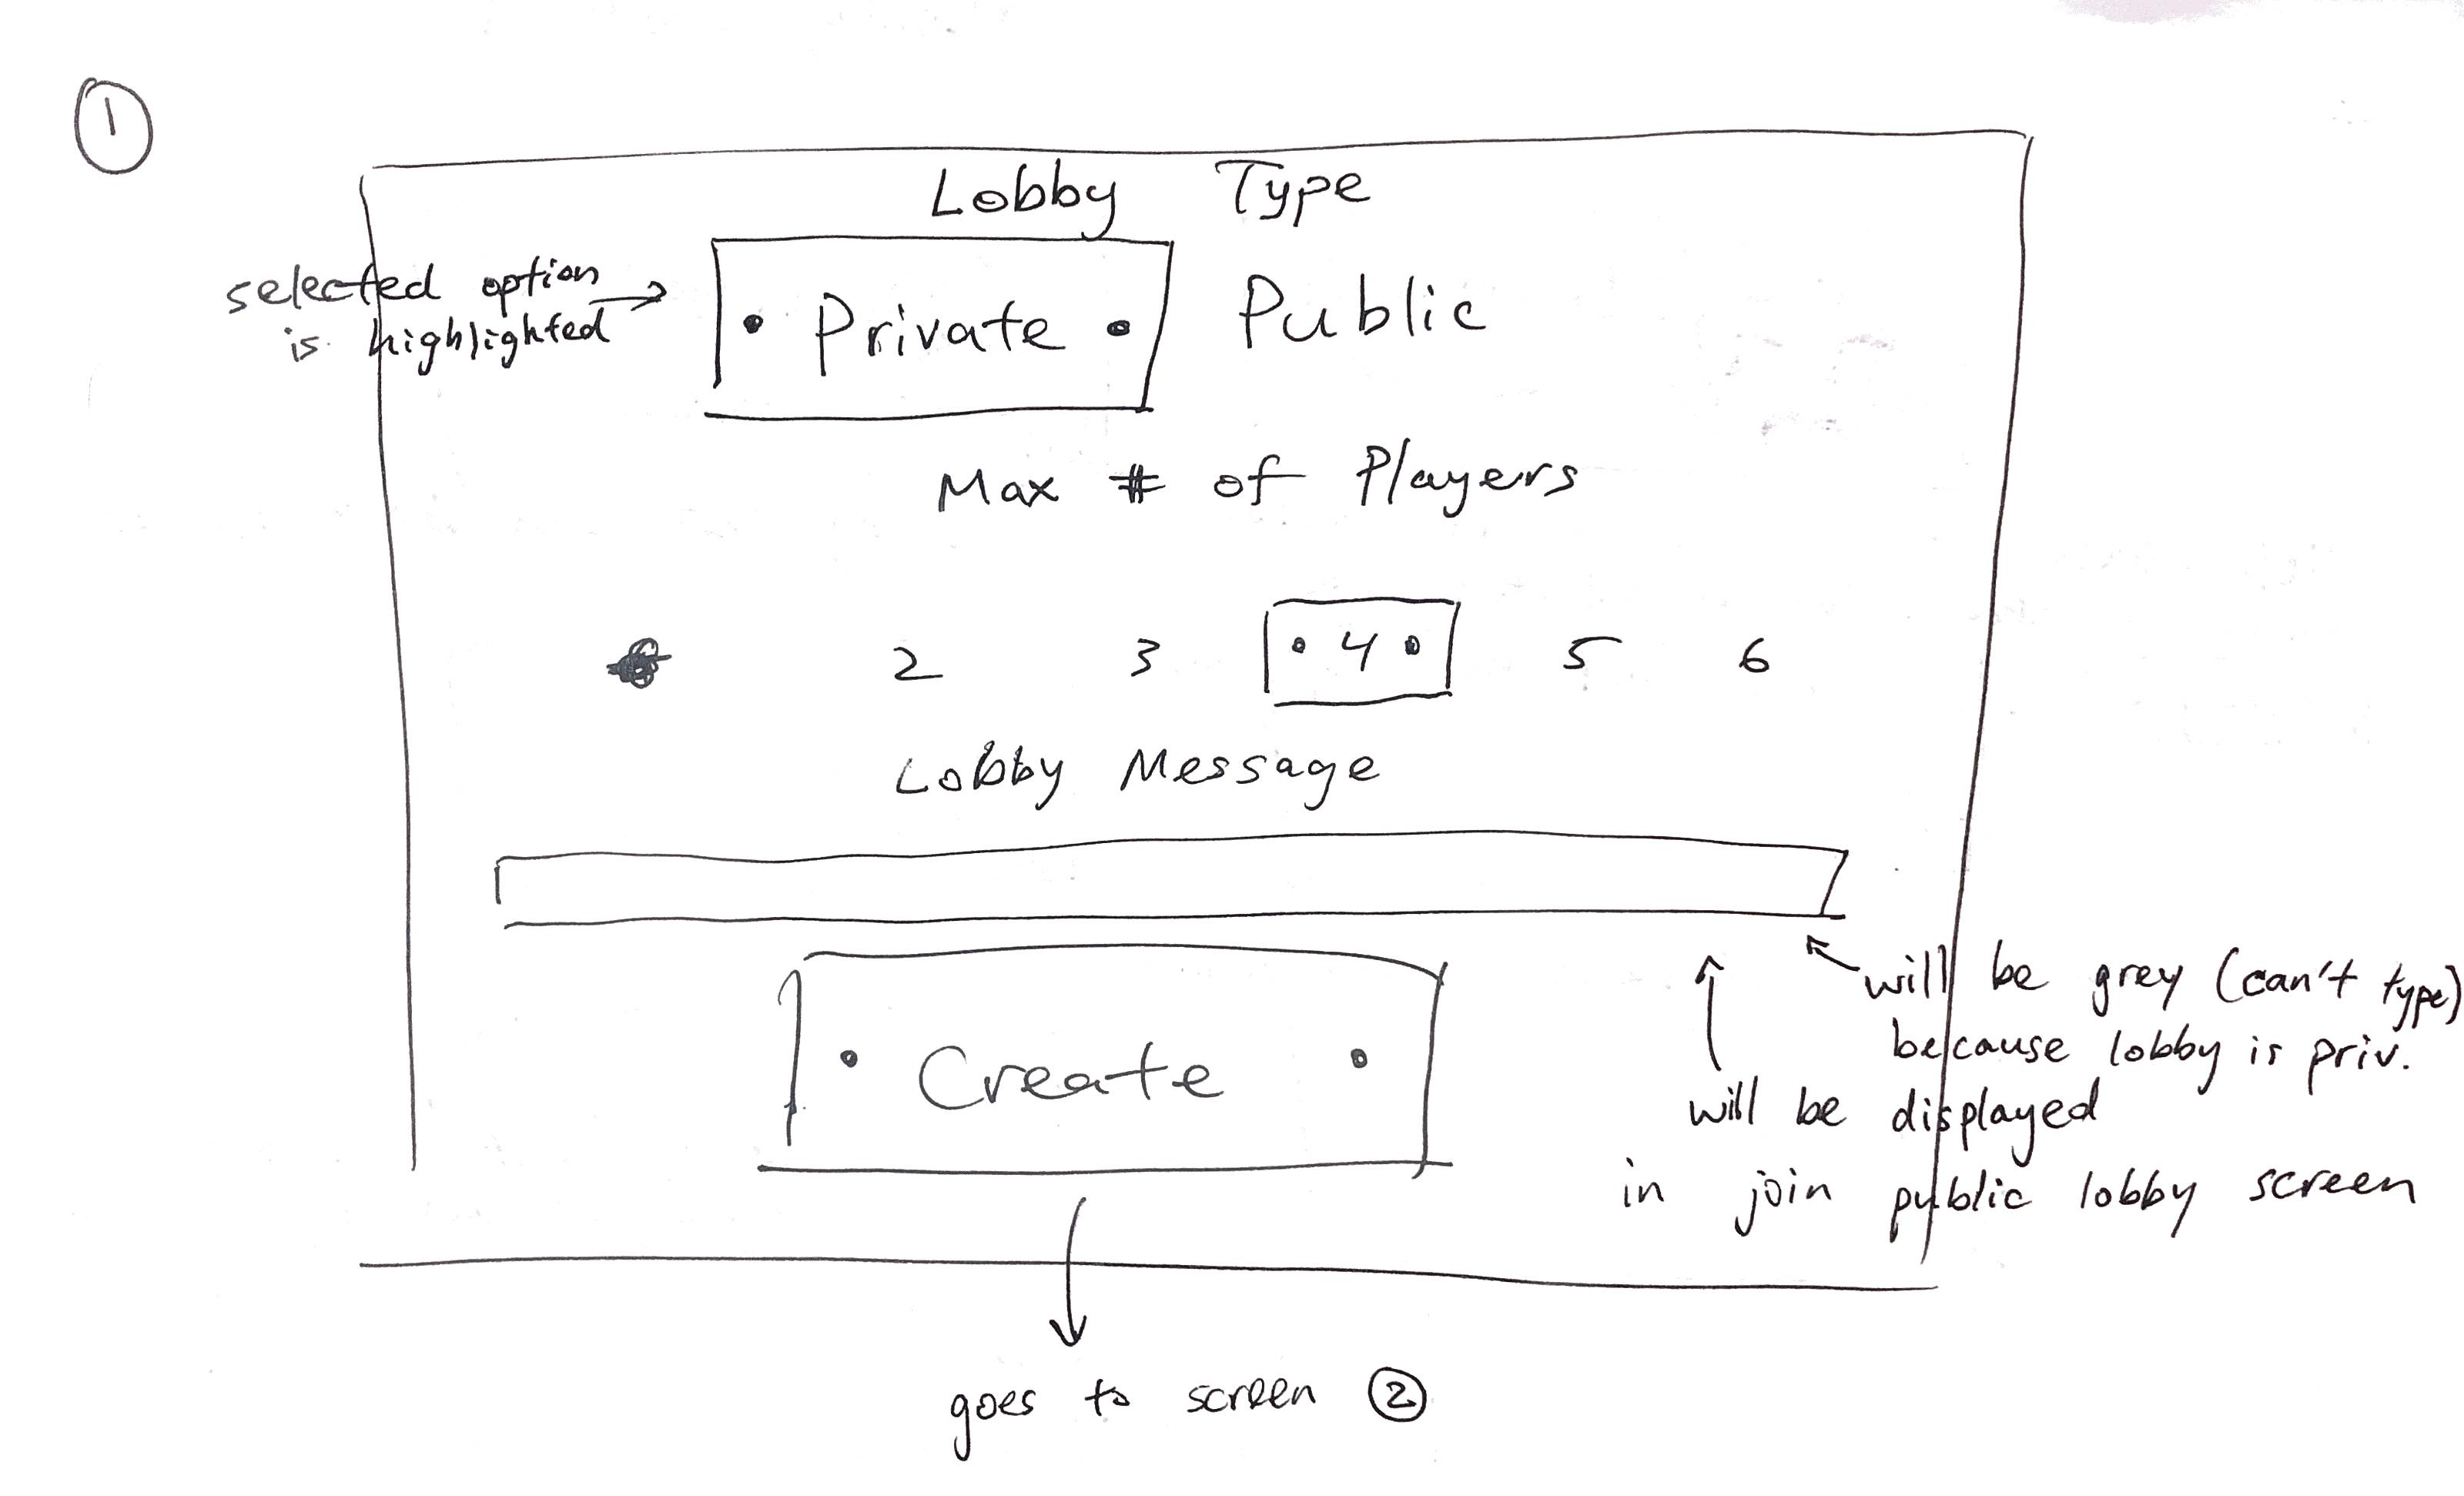 1
Lobby Type
selected option
is highlighted
Private Public
Max # of Players
2 3 4 5 6
Lobby Message
will be grey (can't type)
because lobby is priv.
Create
will be displayed
in join public lobby screen
goes to screen 2